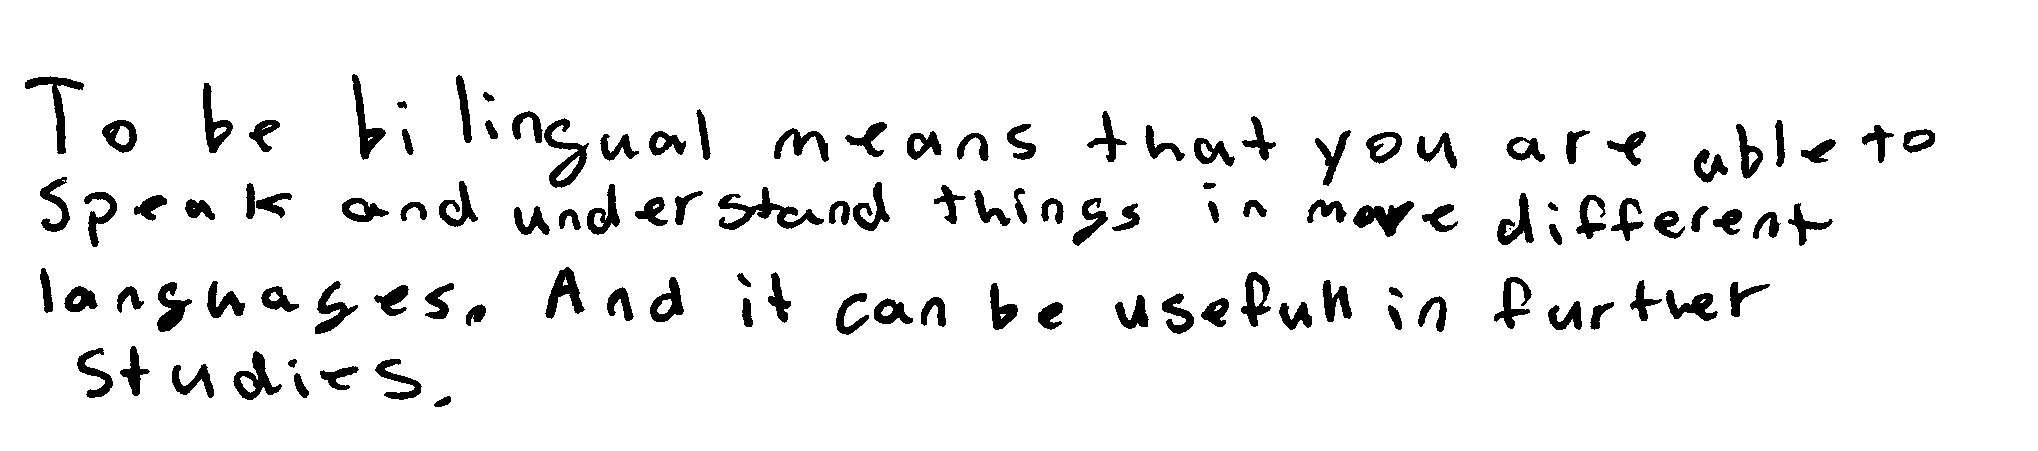 To be bilingual means that you are able to
speak and understand things in more different
languages. And it can be usefull in further
studies.